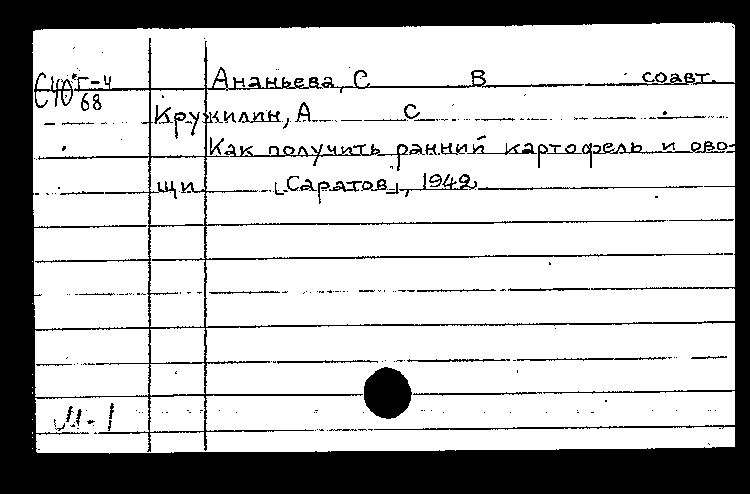 С40 Г-4/68
Ананьева, С В соавт.
Кружилин, А С
Как получить ранний картофель и ово-
щи [Саратов], 1942.
М-1